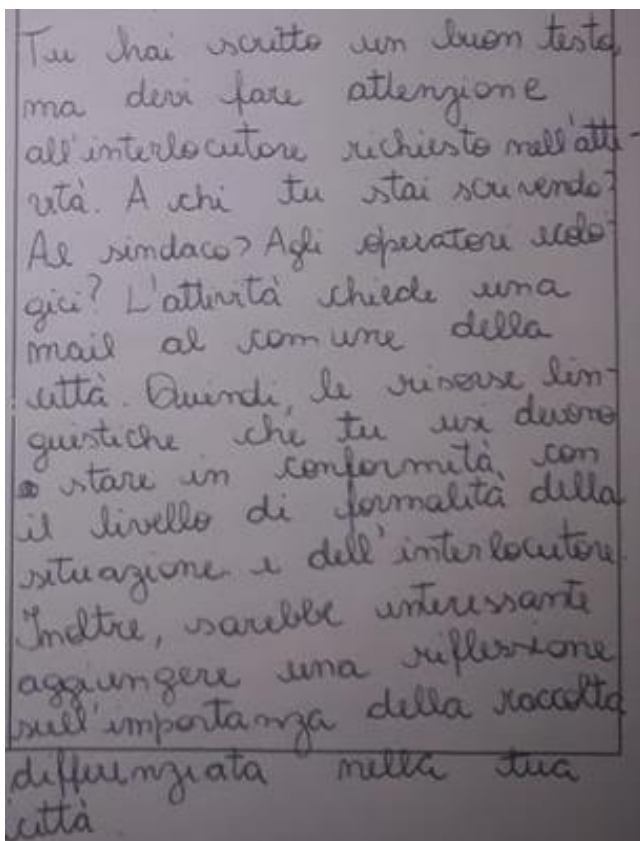 Tu hai scritto un buon testo,
ma devi fare attenzione
all'interlocutore richiesto nell'atti-
vità. A chi tu stai scrivendo?
Al sindaco? Agli operatori ecolo-
gici? L'attività chiede una
mail al comune della
città. Quindi, le risorse lin-
guistiche che tu usi devono
stare in conformità con
il livello di formalità della
situazione e dell'interlocutore.
Inoltre, sarebbe interessante
aggiungere una riflessione
sull'importanza della raccolta
differenziata nella tua
città.